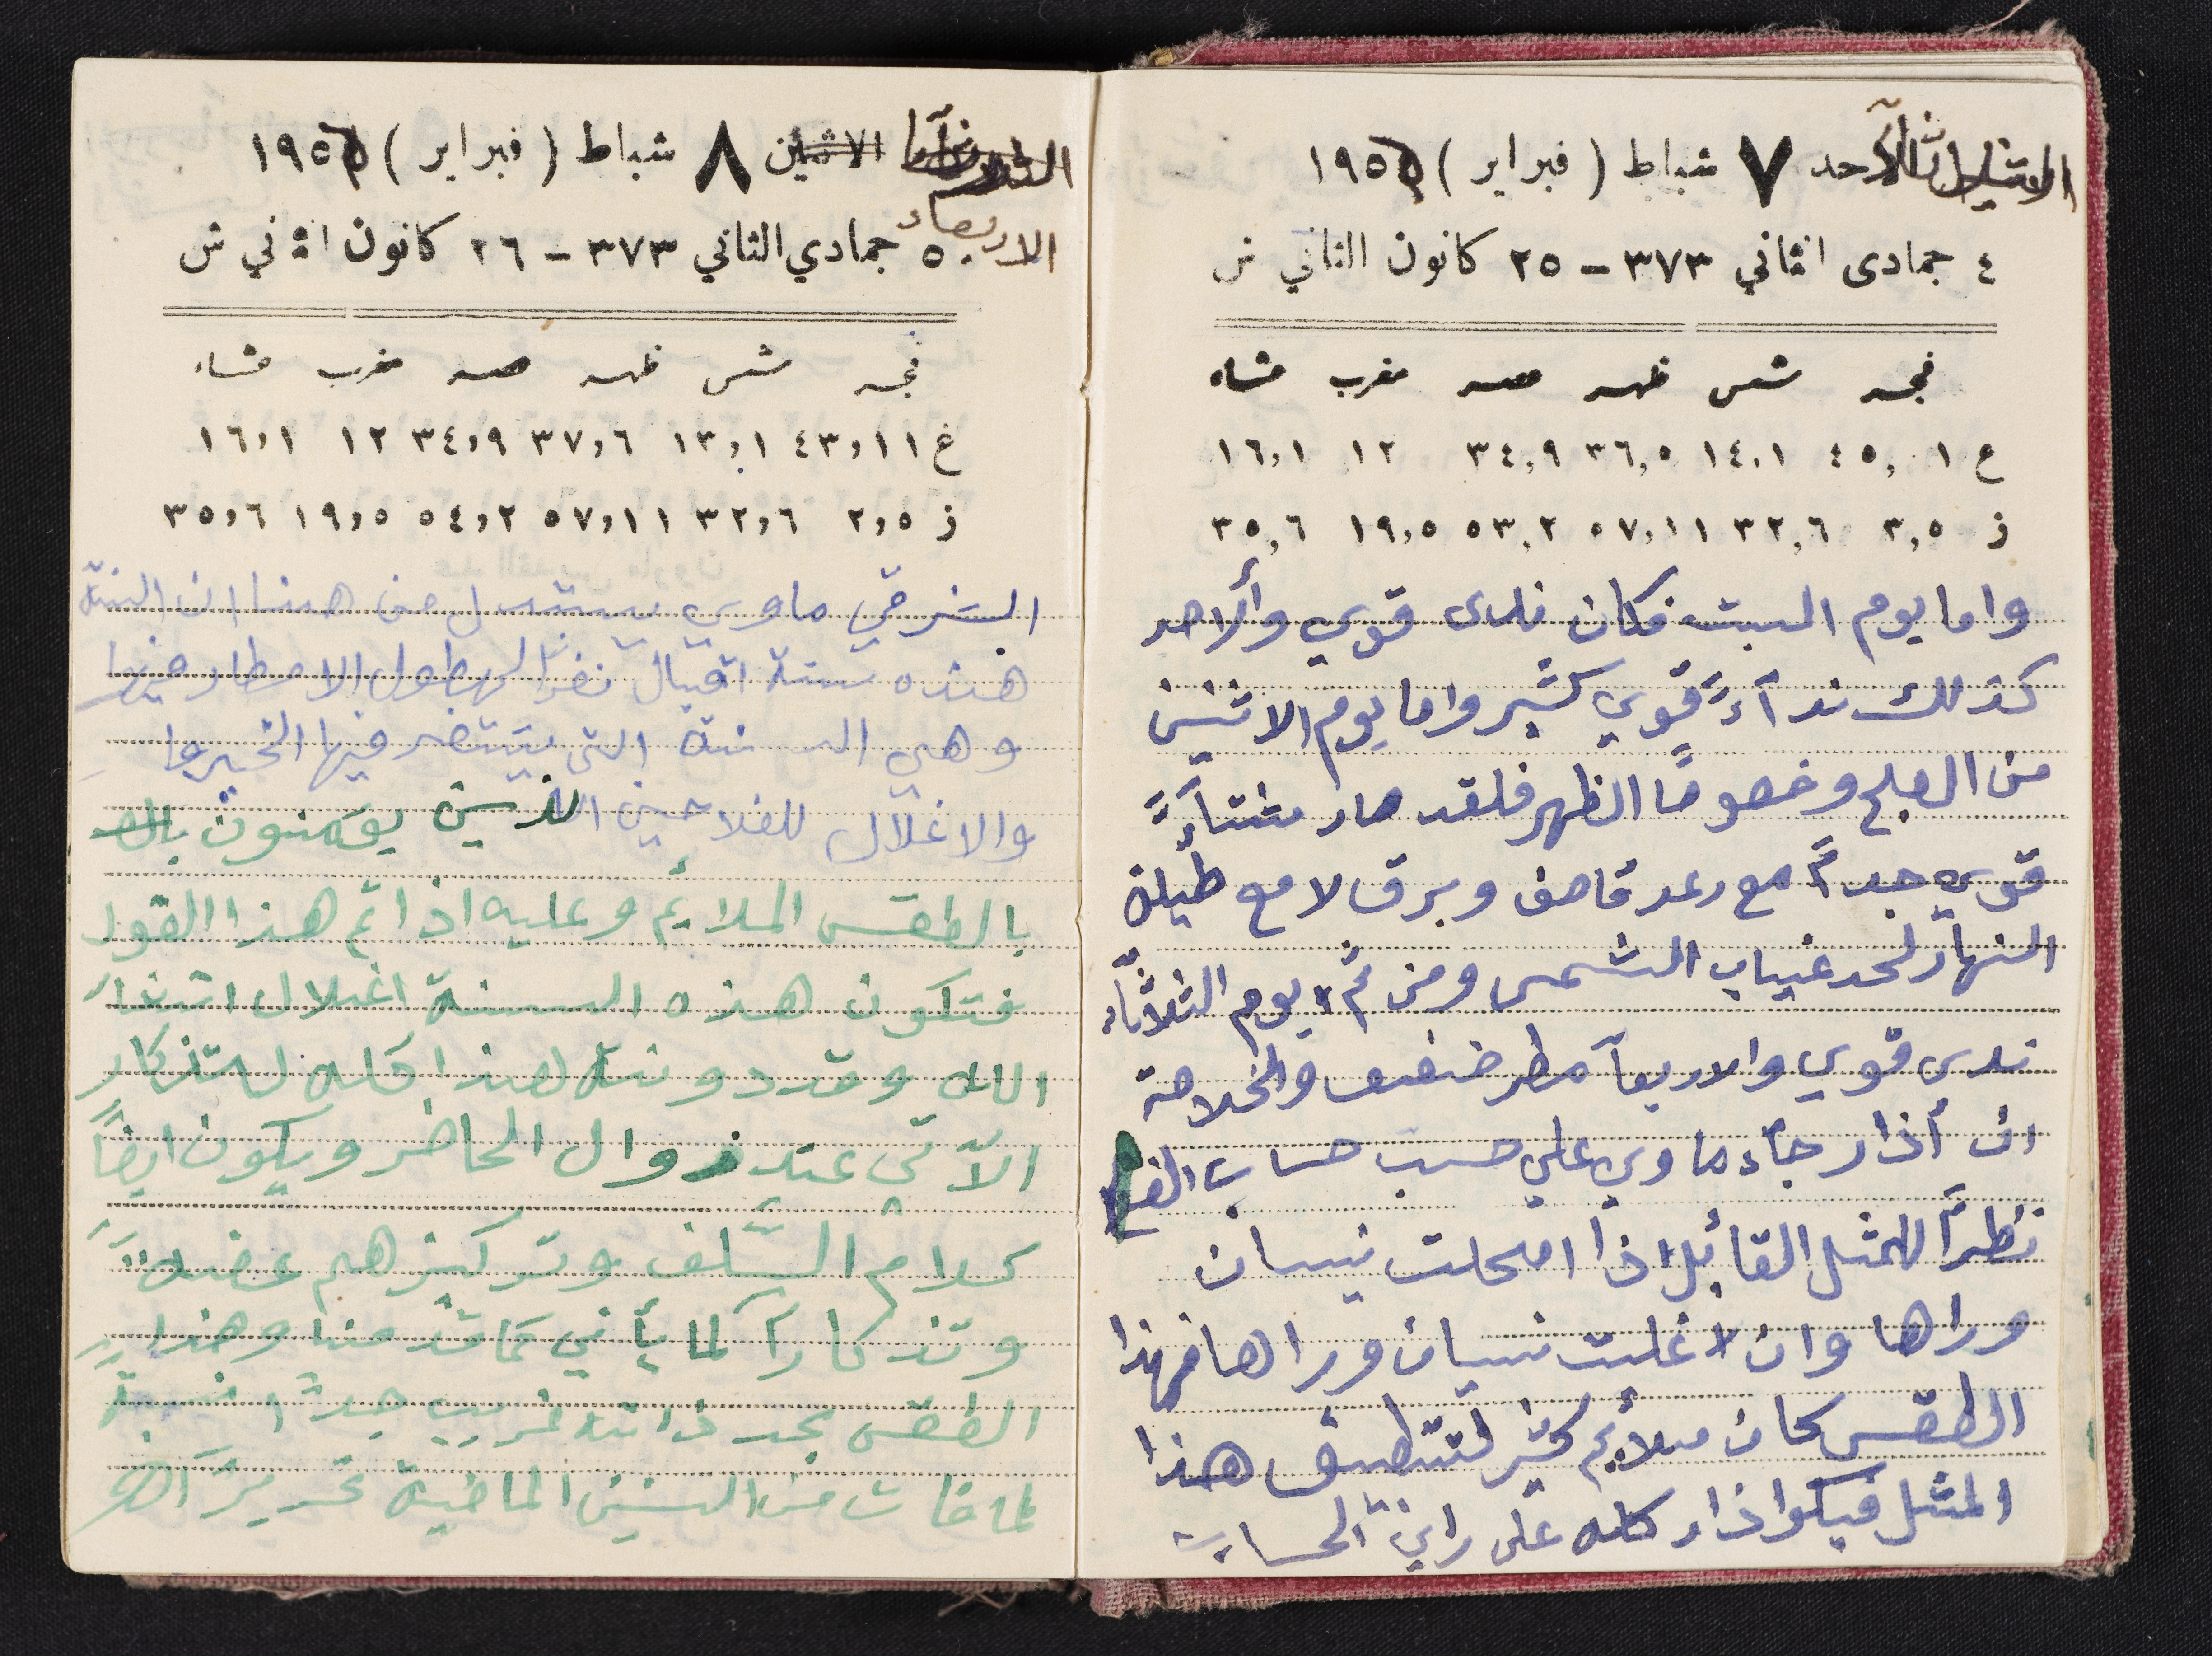 الاحد ٧ شباط ( فبراير ) ١٩٥
٤ جمادى الثاني ٣٧٣ - ٢٥ كانون الثاني ش
فجر شمس ظهر عصر مغرب عشاء
ع ١ ,٤٥ ١٤,١ ٣٦,٥ ٣٤,٩ ١٢ ١٦,١
ز ٣,٥ ٣٢,٦ ٥٧,١١ ٥٣,٢ ١٩,٥ ٣٥,٦
واما يوم السبت فكان ندى قوي وألاحد
كذلك ندآءً قوي كثير واما يوم الاثنين
من الصبح وخصوصًا الظهر فلقد صار مشتآءً
قوي جدآً مع رعد قاصف وبرق لامع طيلة
النهار لحد غياب الشمس ومن ثم يوم الثلاثآء
ندى قوي والاربعآ مطر ضعيف والخلاصة
ان أذار جآء ماوي على حسب حساب
نظرآً للمثل القائل اذا امحلت نيسان
وراها وان لا غلت نيسان وراها فهذا
الطقس كان ملائم كثير لتطبيق هذا
المثل فيكوا ذار كله على راي الحساب
الاثنين ٨ شباط ( فبراير ) ١٩٥
الاربعاء
٥ جمادي الثاني ٣٧٣ - ٢٦ كانون الثاني ش
فجر شمس ظهر عصر مغرب عشاء
غ ٤٣,١١ ١٣,١ ٣٧,٦ ٣٤,٩ ١٢ ١٦,١
ز ٢,٥ ٣٢,٦ ٥٧,١١ ٥٤,٢ ١٩,٥ ٣٥,٦
الشرقي ماوي يستدل من هنا ان السنة
هذه سنة اقبال نظرآ لهطول الامطار فيها
وهي السنة التي ينتضر فيها الخير وا
والاغلال للفلاحين الذين يؤمنون بالط
بالطقس الملائم وعليه اذا تم هذا القول
فتكون هذه السنة اغلال انشآ
الله وقد دونة هذا كله للتذكار
الآتي عند زوال الحاضر ويكون ايضاً
كلام السّلف وتركيزهم
وتذكارآ لما يأتي منا وهذا
الطقس بحد ذاته غريب جدآ نسبة
لما فات من السنين الماضية تحريرآ